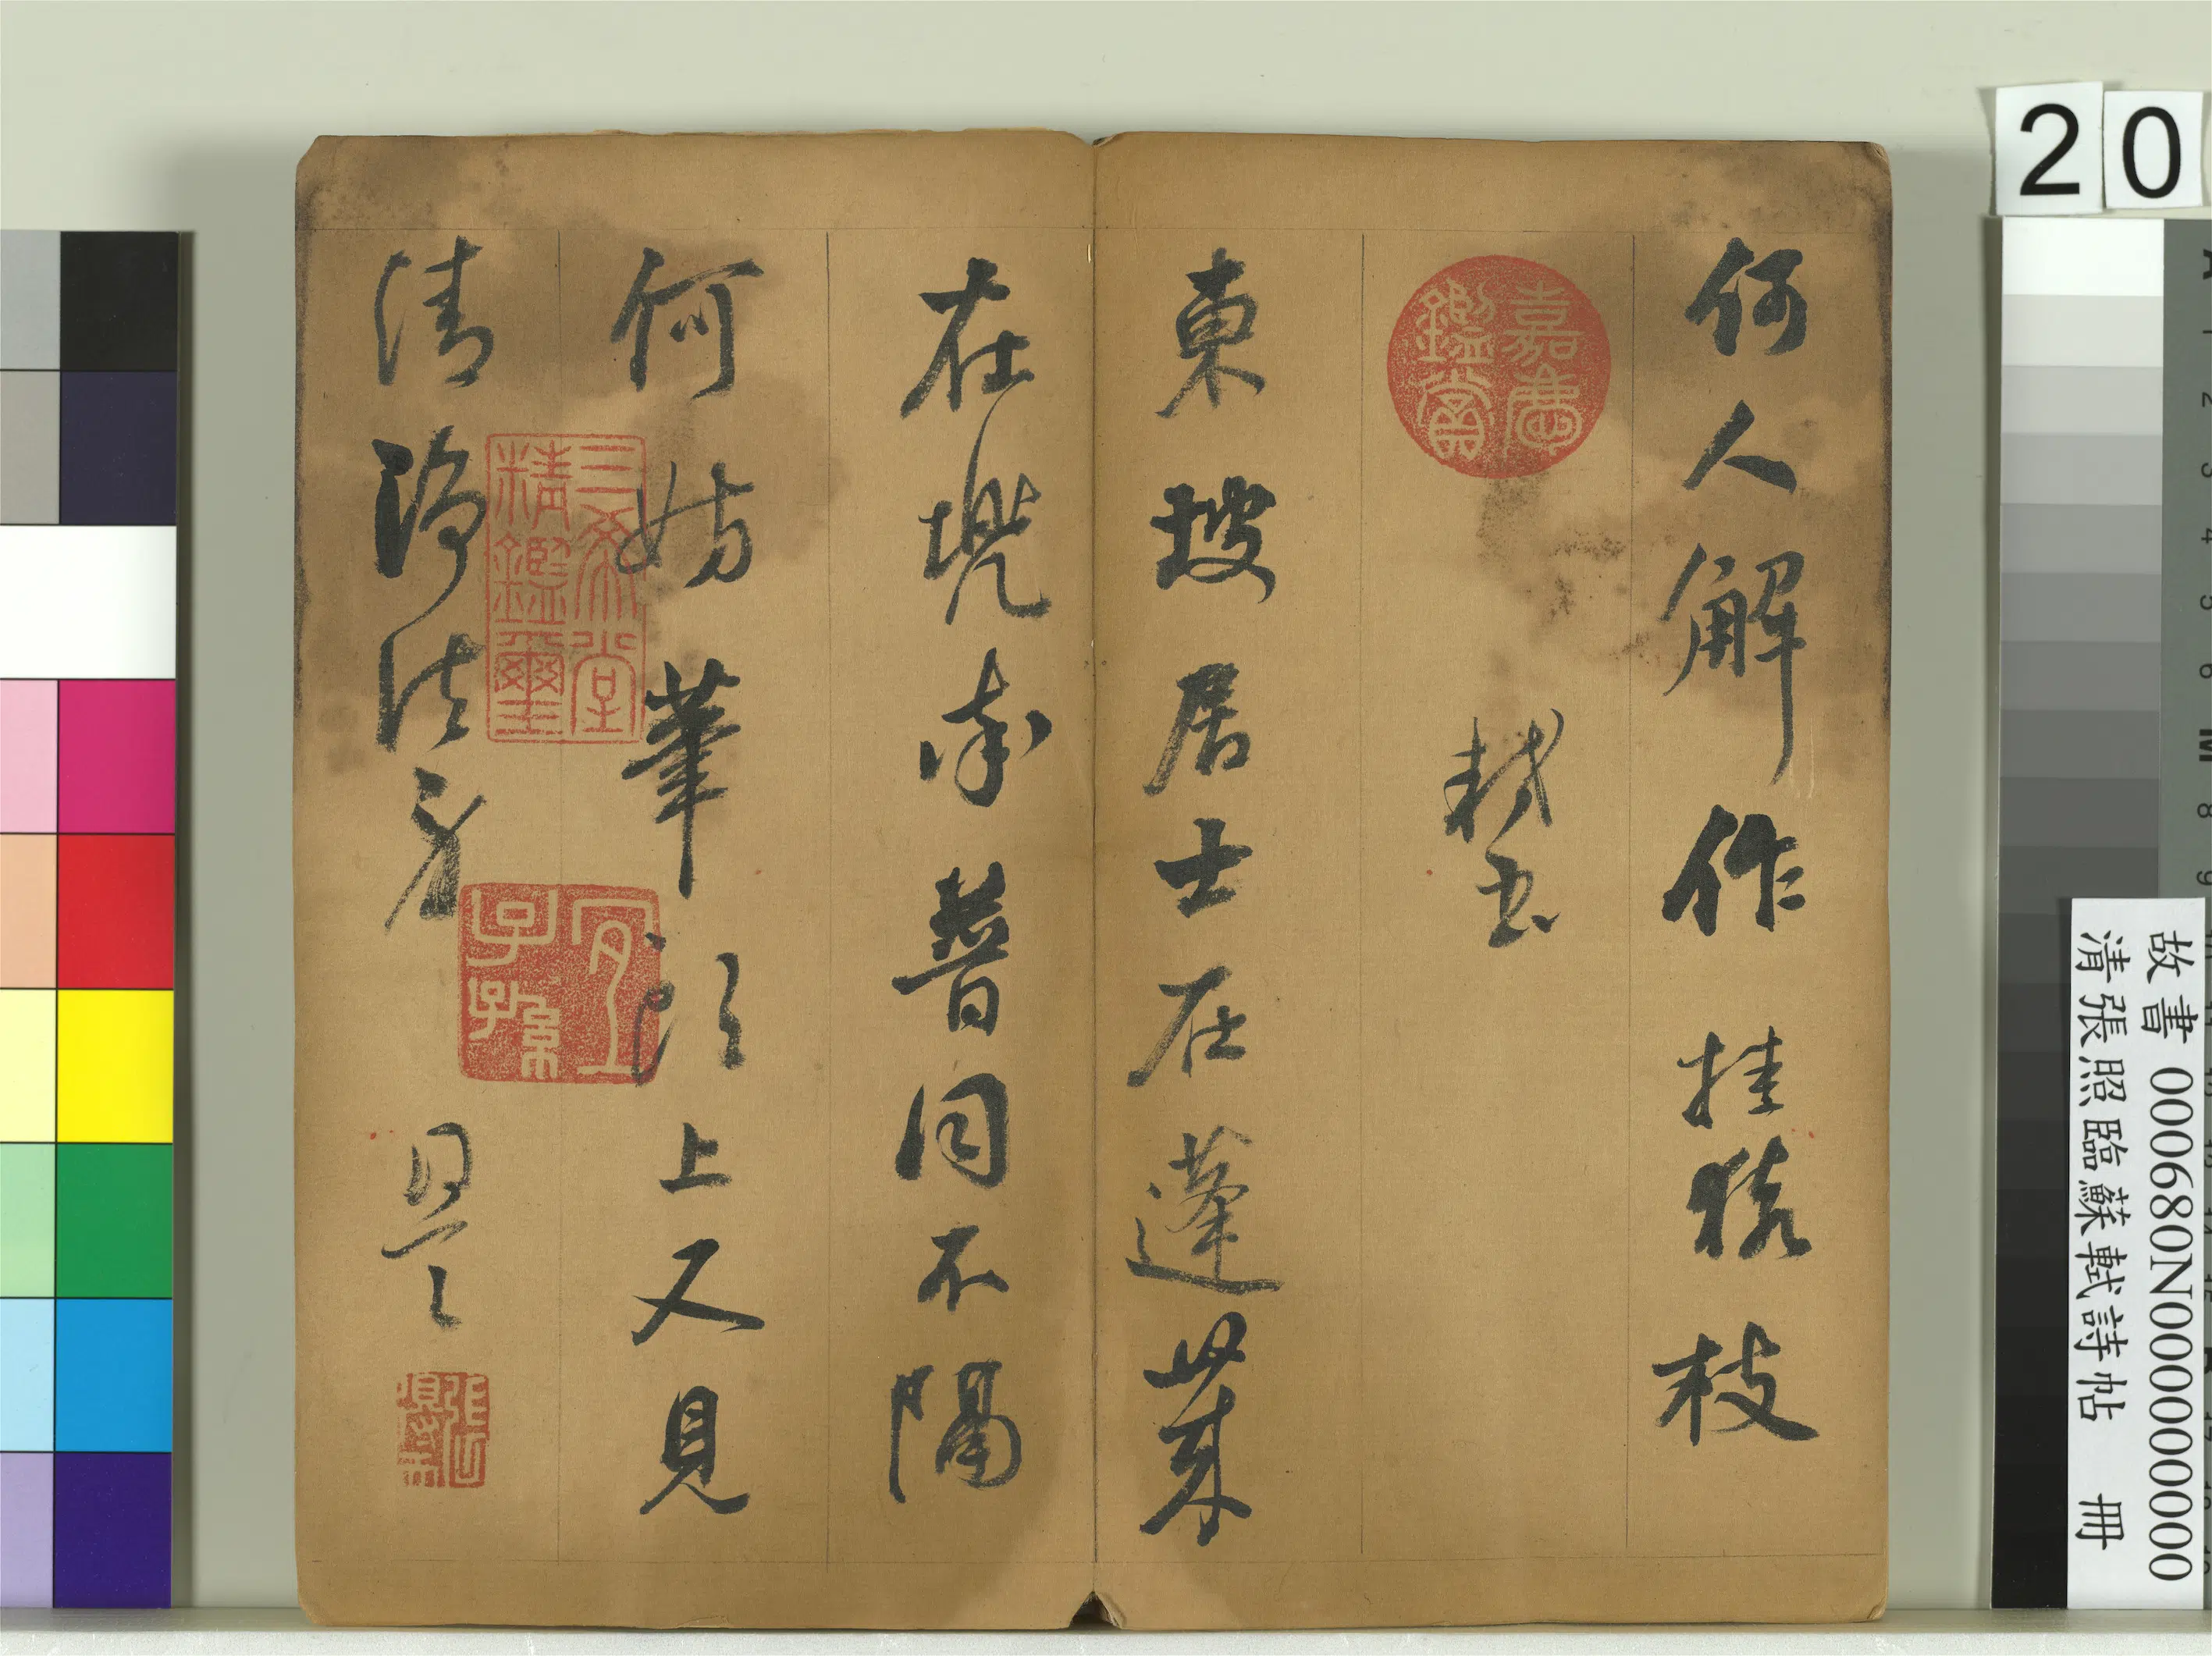 何人解作挂猿枝
軾書
東坡居士在蓬萊
在兜率普同不隔
何妨筆頭上又見
清淨法身 照
嘉慶鑑賞
三希堂精鑑璽
宜子孫
20
故書 000680N000000000
清張照臨蘇軾詩帖 冊